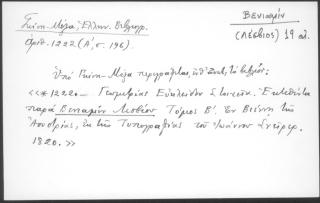 Γκίνη - Μέξα, Ελλην. Βιβλιογρ.
Αριθ. 1222 (Α', σ. 196).
Βενιαμίν
(Λέσβιος) 19 αι.
Υπό Γκίνη - Μέξα περιγράφεται, το βιβλίον:
« * 1220.- Γεωμετρίας Ευκλείδου Στοιχεία. Εκτεθέντα
παρά Βενιαμίν Λεσβίου Τόμος Β'. Εν Βιέννη της
Αουστρίας, Εκ της Τυπογραφίας του Ιωάννου Σνείρερ.
1820. »